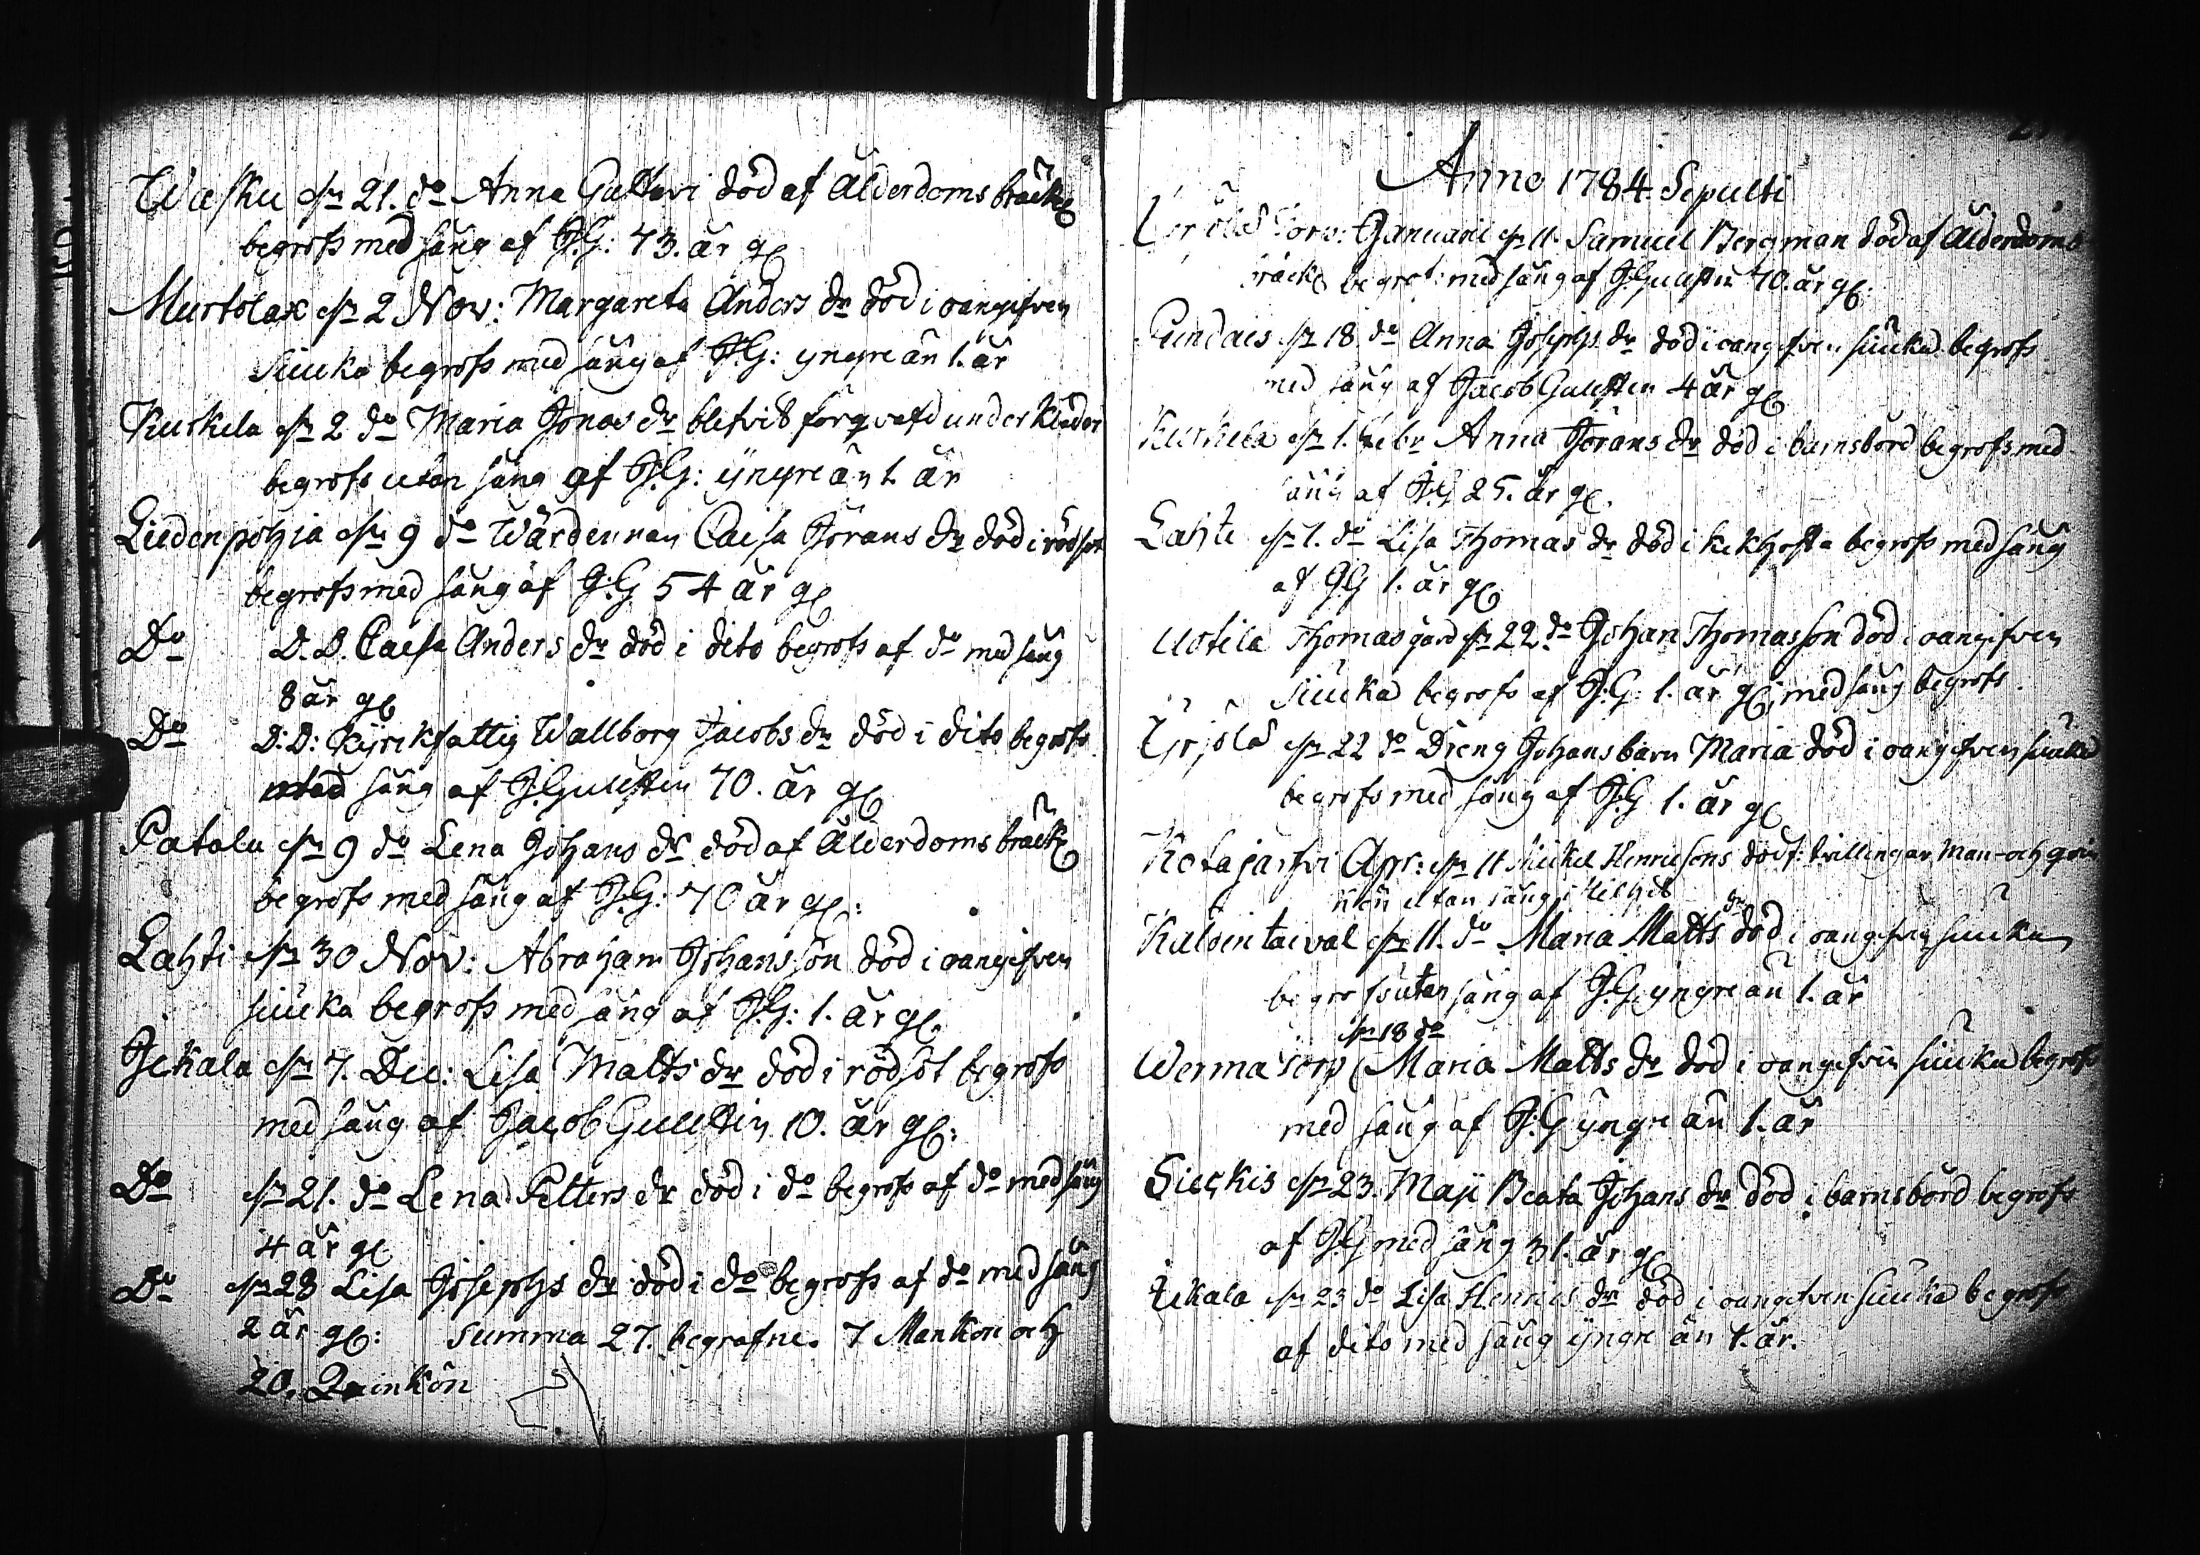 Wasku d. 21. do Anna Gustavi död af Ålderdoms bräckl
begrofs med sång af J.G: 73. år gl
Murtolax d. 2 Nov: Margareta Anders dr död i oangifven
siuka begrofs med sång af J.G: yngre än 1. år
Kuskela d. 2 do Maria Jonas dr blefvit förqvafd under kläder
begrofs utan sång af J.G: yngre än 1. år
Liedenpohja d. 9 do Wärdinnan Caisa Jörans dr död i rödsot
begrofs med sång af J.G 54 år gl
Do D.D. Caisa Anders dr död i dito begrofs af do med sång
8 år gl
Do D:D: Kyrckfattig Wallborg Jacobs dr död i dito begrofs
med sång af J.Gulsten 70. år gl
Patala d. 9 do Lena Johans dr död af Ålderdoms bräckl
begrofs med sång af J.G: 70 år gl:
Lahti d. 30 Nov: Abraham Johansson död i oangifven
siuka begrofs med sång af J.G: 1. år gl.
Jekala d. 7. Dec: Lisa Matts dr död i rödsot begrofs
med sång af Jacob Gulsten 10. år gl:
Do d. 21. do Lena Petters dr död i do begrofs af do med sång
4 år gl
Do d. 28 Lisa Josephs dr död i do begrofs af do med sång
2 år gl: Summa 27. begrafne. 7 Mankön och
20. Qvinkön
Anno 1784 Sepulti
Torp: Januarii d. 11. Samuel Bergman död af Ålderdoms
bräckl begrof: med sång af J:Gulsten 70. år gl.
Sundais d. 18 do Anna Josephs dr död i oangifven siuka begrofs
med sång af Jacob Gulsten 4 år gl
Kuskela d. 1. Febr Anna Jörans dr död i barnsbörd begrofs med
sång af J.G 25. år gl.
Lahti d. 1. do Lisa Thomas dr död i kikhosta begrofs med sång
af J.G 1. år gl
Uotila Thomas gård d. 22. do Johan Thomasson död i oangifven
siuka begrofs af J.G: 1. år gl, med sång begrofs.
Yrjölä d. 22 do Dreng Johans barn Maria död i oangifven siuka
begrofs med sång af J.G 1. år gl
Kotajärfvi Apr: d. 11 Mickel Henricsons dödf: tvillingar Man- och qvin
kön utan sång i stillhet
Kaivointaival d. 11. do Maria Matts dr död i oangifven siuka
begrofs utan sång af J.G. yngre än 1. år
d. 18 do
Werma torp Maria Matts dr död i oangifven siuka begrofs
med sång af J.G yngre än 1. år
Sieckis d. 23. Maji Beata Johans dr död i barnsbörd begrofs
af J.G med sång 31. år gl
Jekala d. 23 do Lisa Henrics dr död i oangifven siuka begrofs
af dito med sång yngre än 1. år.